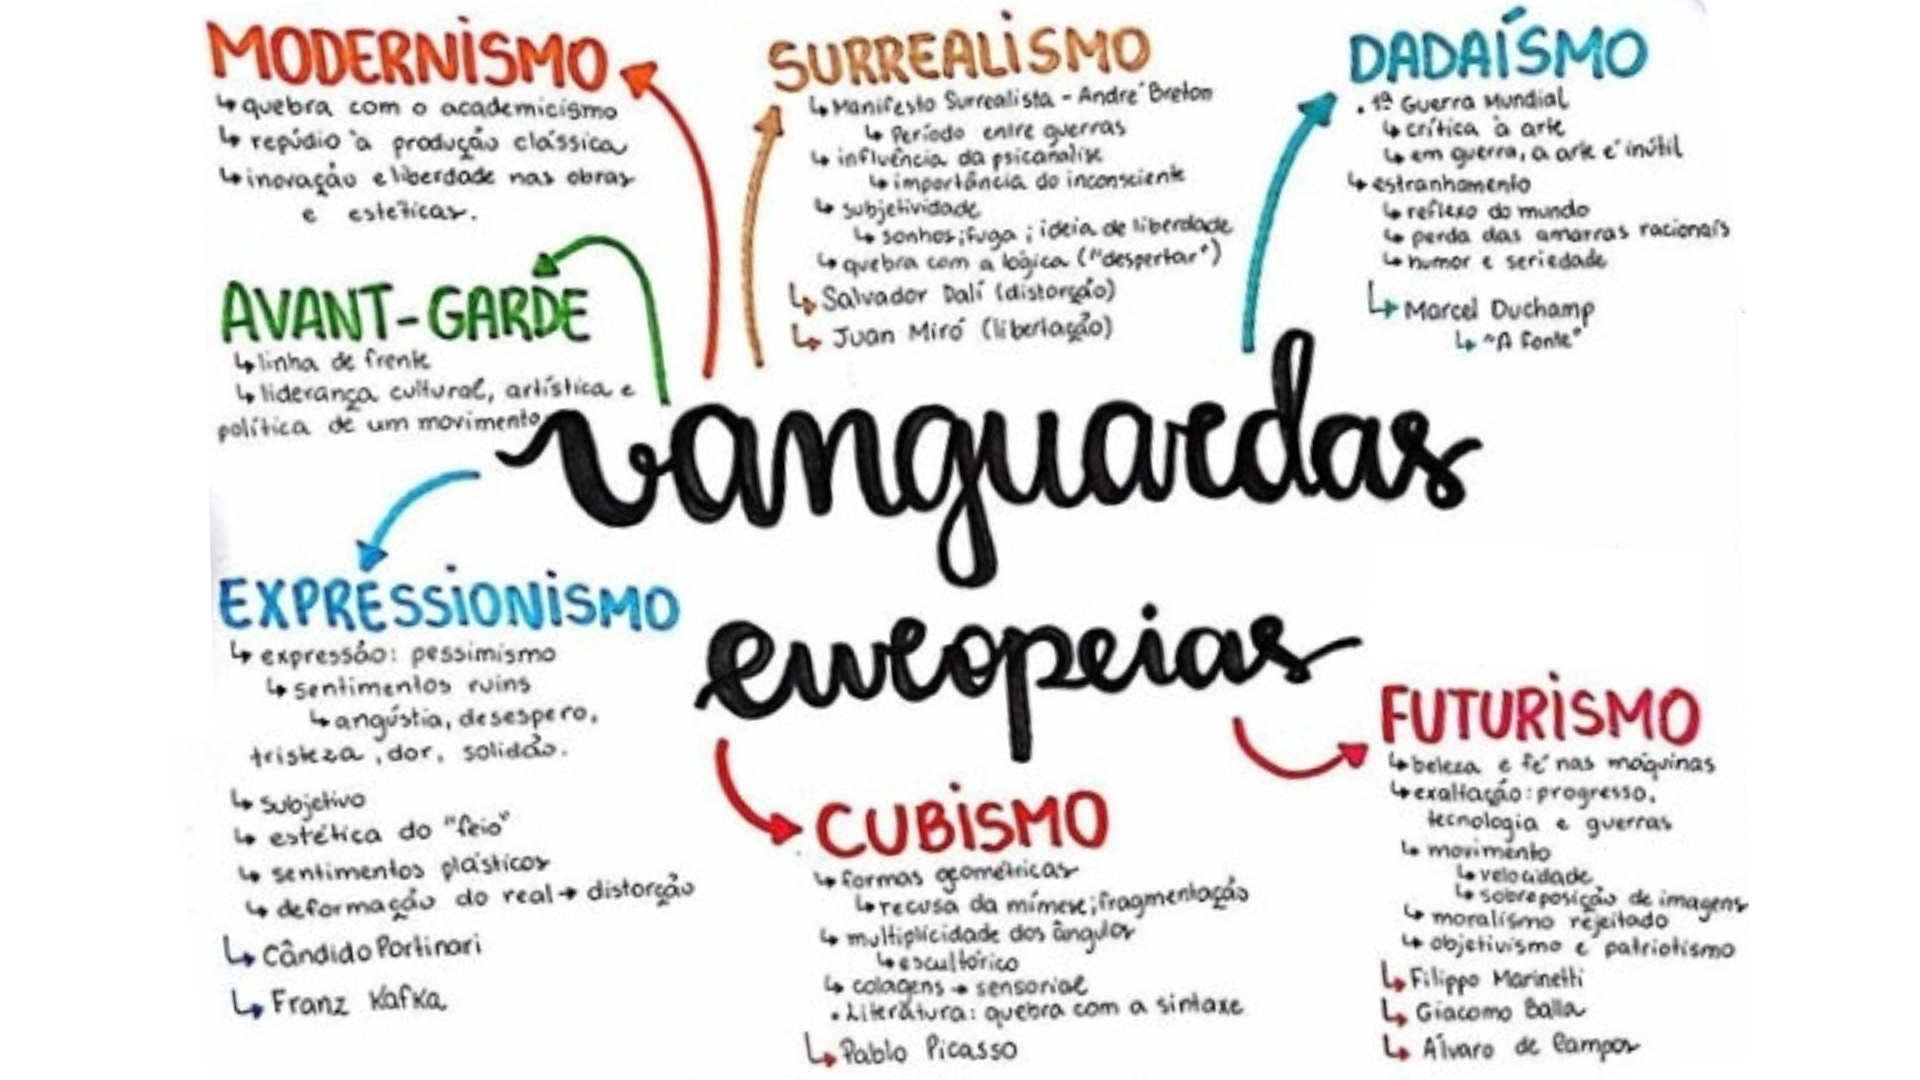 MODERNISMO
↳ quebra com o academicismo
↳ repúdio à produção clássica
↳ inovação e liberdade nas obras
e estéticas.
AVANT-GARDE
↳ linha de frente
↳ liderança cultural, artística e
política de um movimento
SURREALISMO
↳ Manifesto Surrealista - André Breton
↳ Período entre guerras
↳ influência da psicanálise
↳ importância do inconsciente
↳ subjetividade
↳ sonhos; fuga; ideia de liberdade
↳ quebra com a lógica ("despertar")
↳ Salvador Dalí (distorção)
↳ Juan Miró (libertação)
DADAÍSMO
• 1ª Guerra Mundial
↳ crítica à arte
↳ em guerra, a arte é inútil
↳ estranhamento
↳ reflexo do mundo
↳ perda das amarras racionais
↳ humor e seriedade
↳ Marcel Duchamp
↳ "A fonte"
vanguardas
europeias
EXPRESSIONISMO
↳ expressão: pessimismo
↳ sentimentos ruins
↳ angústia, desespero,
tristeza, dor, solidão.
↳ subjetivo
↳ estética do "feio"
↳ sentimentos plásticos
↳ deformação do real → distorção
↳ Cândido Portinari
↳ Franz Kafka
CUBISMO
↳ formas geométricas
↳ recusa da mímese; fragmentação
↳ multiplicidade dos ângulos
↳ escultórico
↳ colagens → sensorial
• Literatura: quebra com a sintaxe
↳ Pablo Picasso
FUTURISMO
↳ beleza e fé nas máquinas
↳ exaltação: progresso,
tecnologia e guerras
↳ movimento
↳ velocidade
↳ sobreposição de imagens
↳ moralismo rejeitado
↳ objetivismo e patriotismo
↳ Filippo Marinetti
↳ Giacomo Balla
↳ Álvaro de Campos